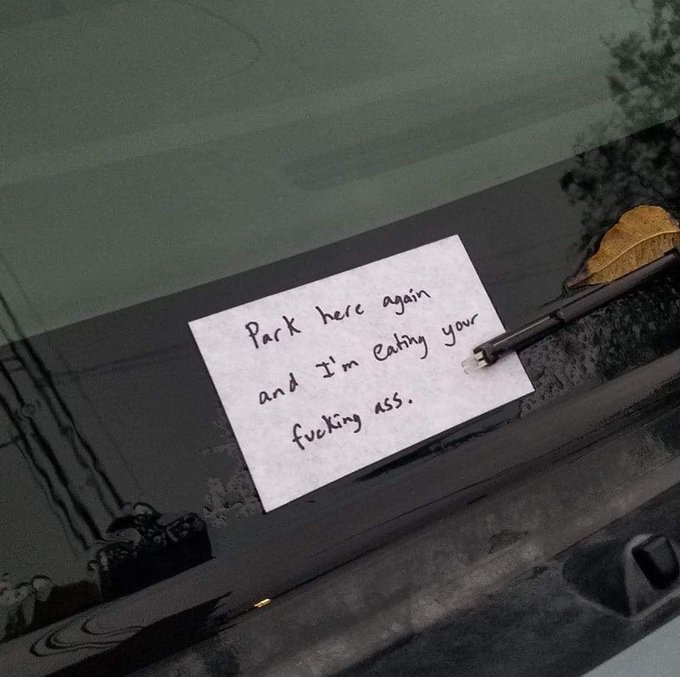 Park here again
and I'm eating your
fucking ass.